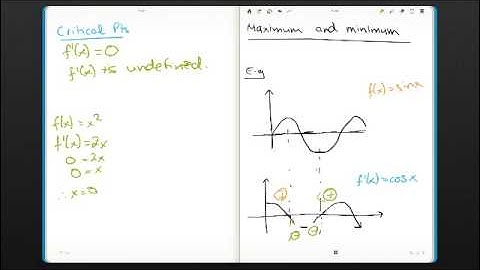 Critical Pts
f'(x) = 0
f'(x) is undefined.
f(x) = x²
f'(x) = 2x
0 = 2x
0 = x
∴ x = 0
Maximum and minimum
E-g
f(x) = sinx
f'(x) = cosx
+ +
- -